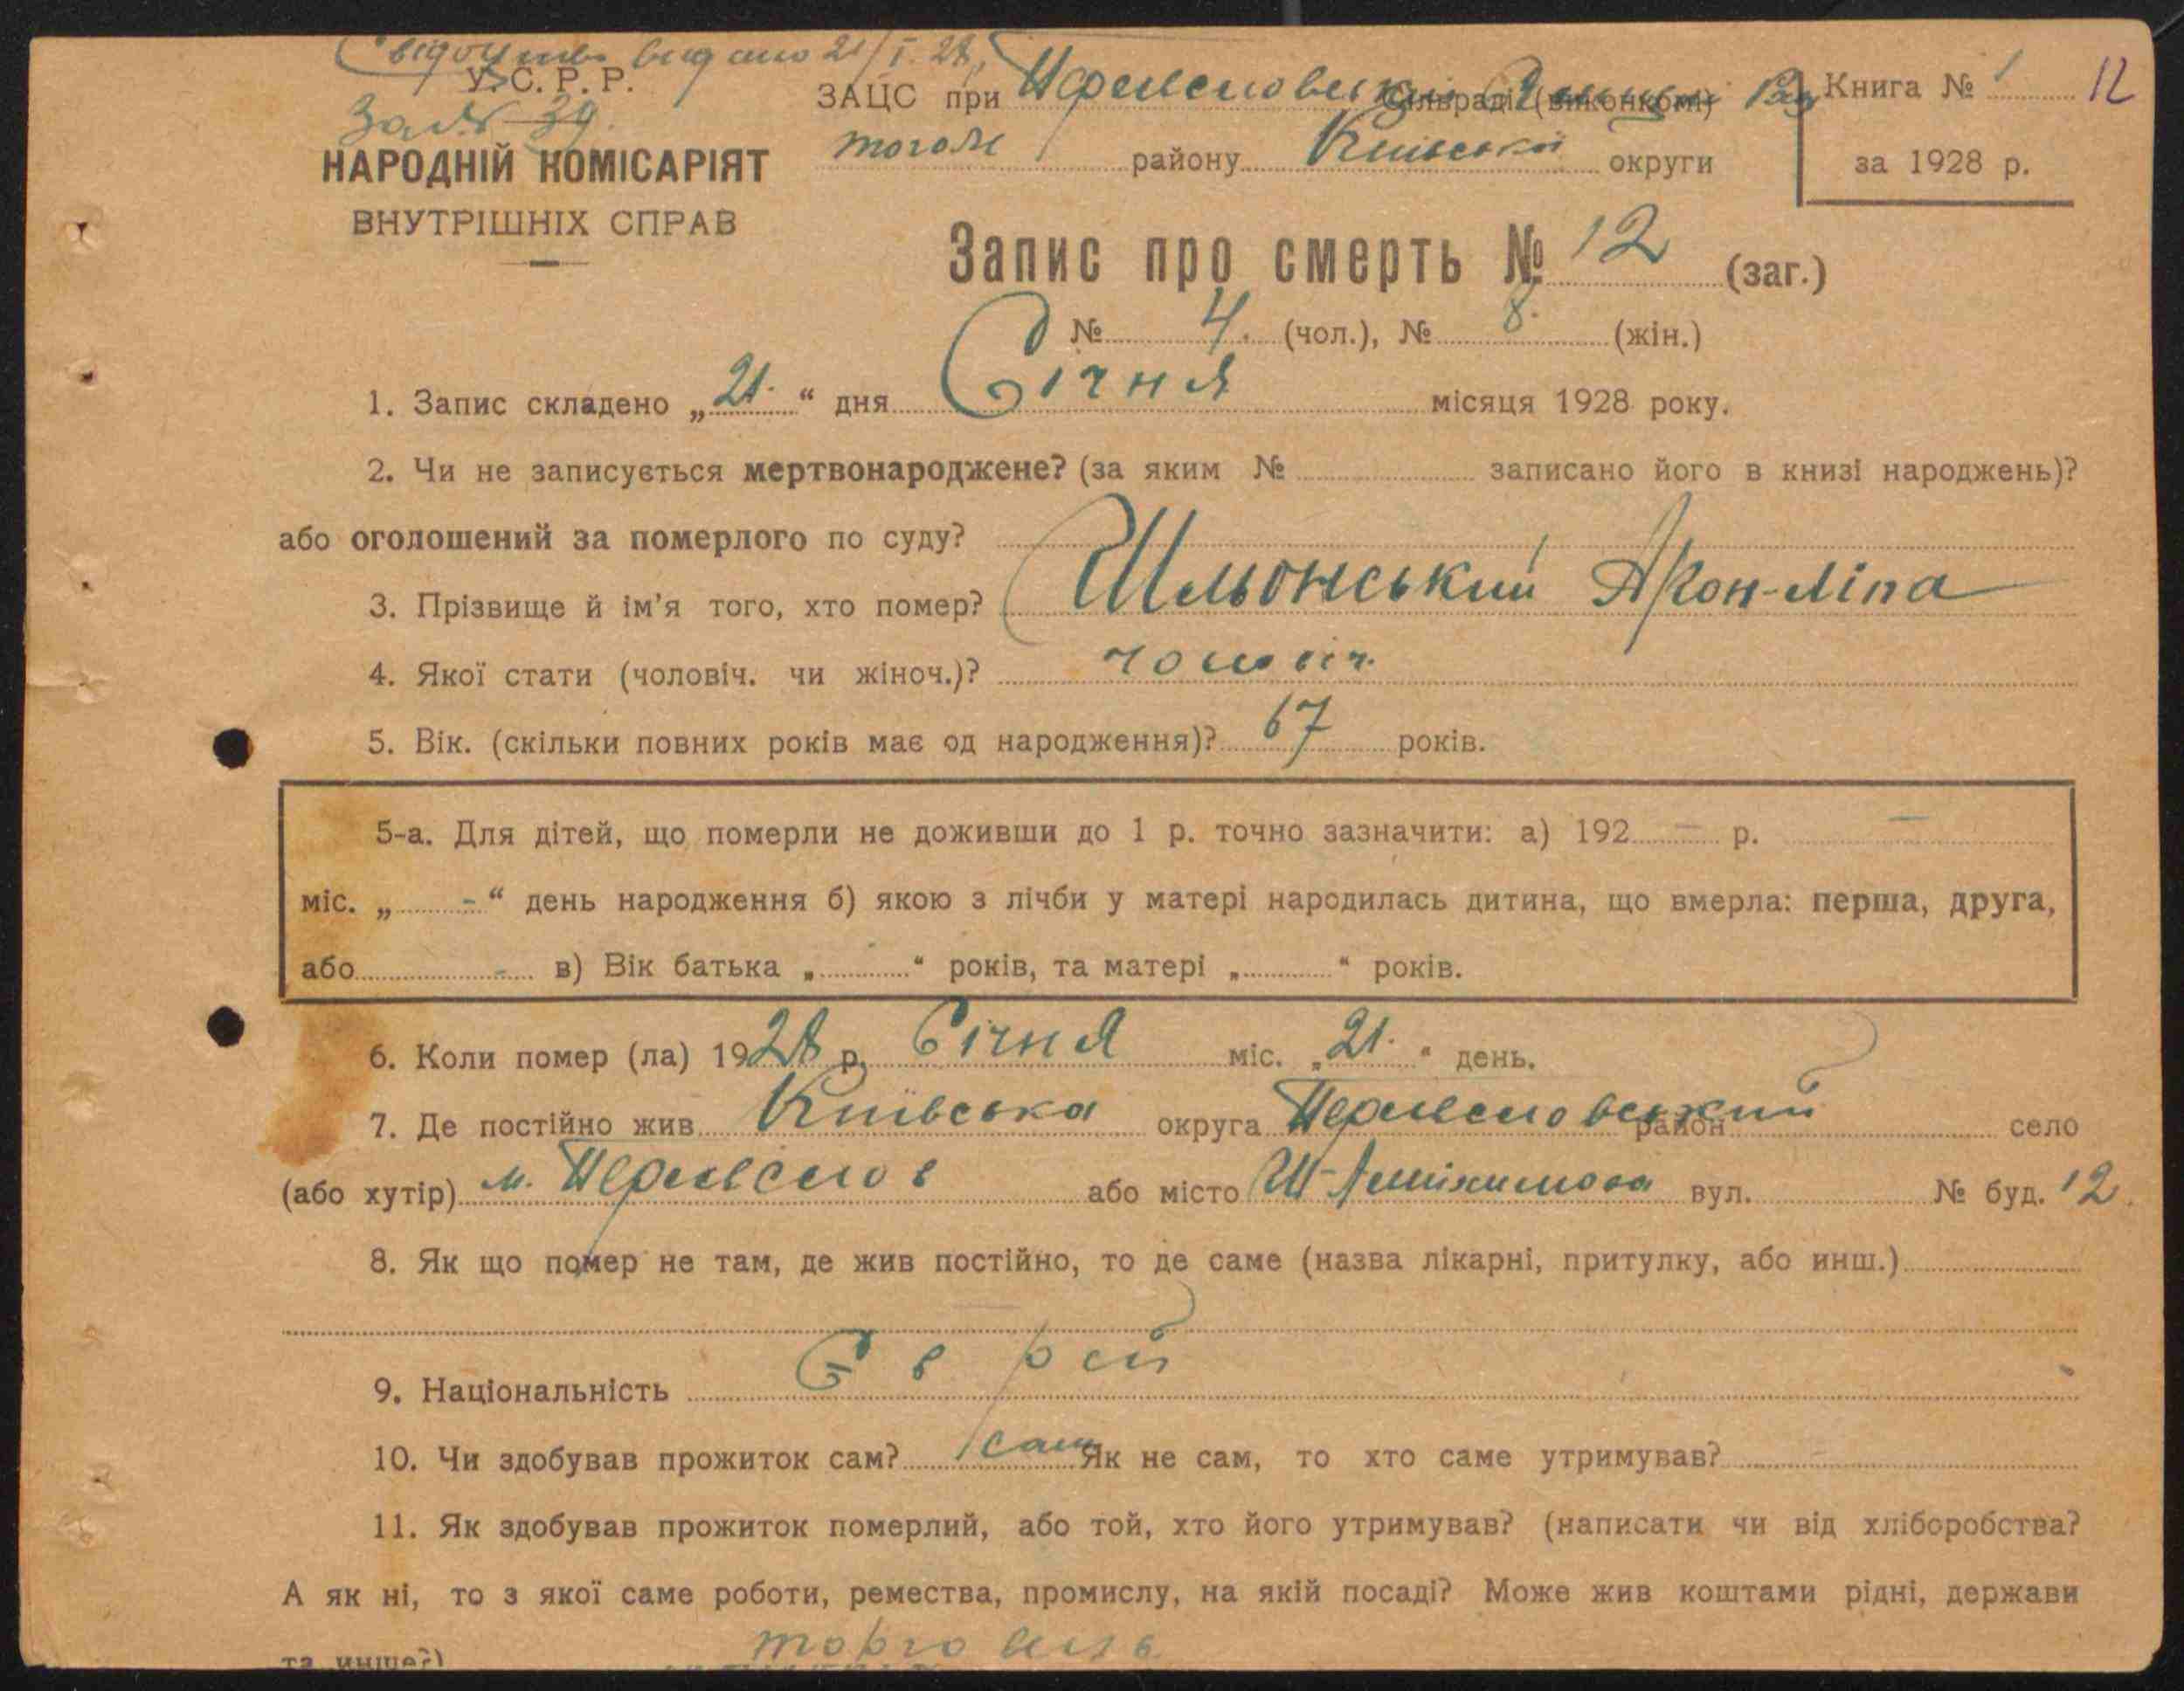 Свідоцтво видано 21/I. 28,
за № 39.
У. С. Р. Р.
НАРОДНІЙ КОМІСАРІЯТ
ВНУТРІШНІХ СПРАВ
ЗАЦС при сільраді (виконкомі)
того ж району Київської округи
Книга № 1 12
за 1928 р.
Запис про смерть № 12 (заг.)
№ 4. (чол.), № 8. (жін.)
1. Запис складено „21.“ дня Січня місяця 1928 року.
2. Чи не записується мертвонароджене? (за яким № записано його в книзі народжень)?
або оголошений за померлого по суду?
3. Прізвище й ім'я того, хто помер? Шльонський Арон-Ліпа
4. Якої стати (чоловіч. чи жіноч.)? чоловіч.
5. Вік. (скільки повних років має од народження)? 67 років.
5-а. Для дітей, що померли не доживши до 1 р. точно зазначити: а) 192 — р. —
міс. „ - “ день народження б) якою з лічби у матері народилась дитина, що вмерла: перша, друга,
або - в) Вік батька „ “ років, та матері „ “ років.
6. Коли помер (ла) 1928 р. Січня міс. „21.“ день.
7. Де постійно жив Київська округа район село
(або хутір) м. або місто вул. № буд. 12.
8. Як що помер не там, де жив постійно, то де саме (назва лікарні, притулку, або инш.)
9. Національність Єврей
10. Чи здобував прожиток сам? сам Як не сам, то хто саме утримував?
11. Як здобував прожиток померлий, або той, хто його утримував? (написати чи від хліборобства?
А як ні, то з якої саме роботи, ремества, промислу, на якій посаді? Може жив коштами рідні, держави
та инше?) торговель